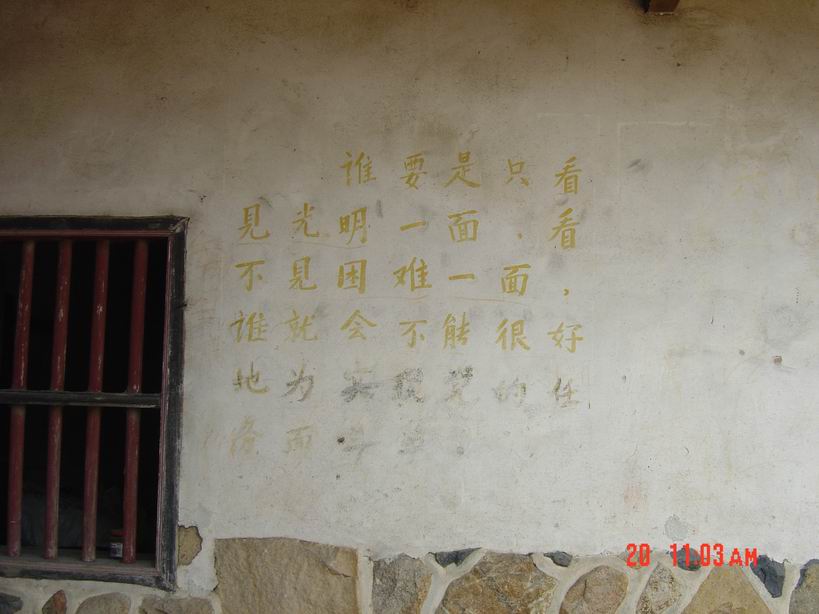 谁要是只看
见光明一面、看
不见困难一面,
谁就会不能很好
地为实现党的任
務而斗争
20 11:03AM